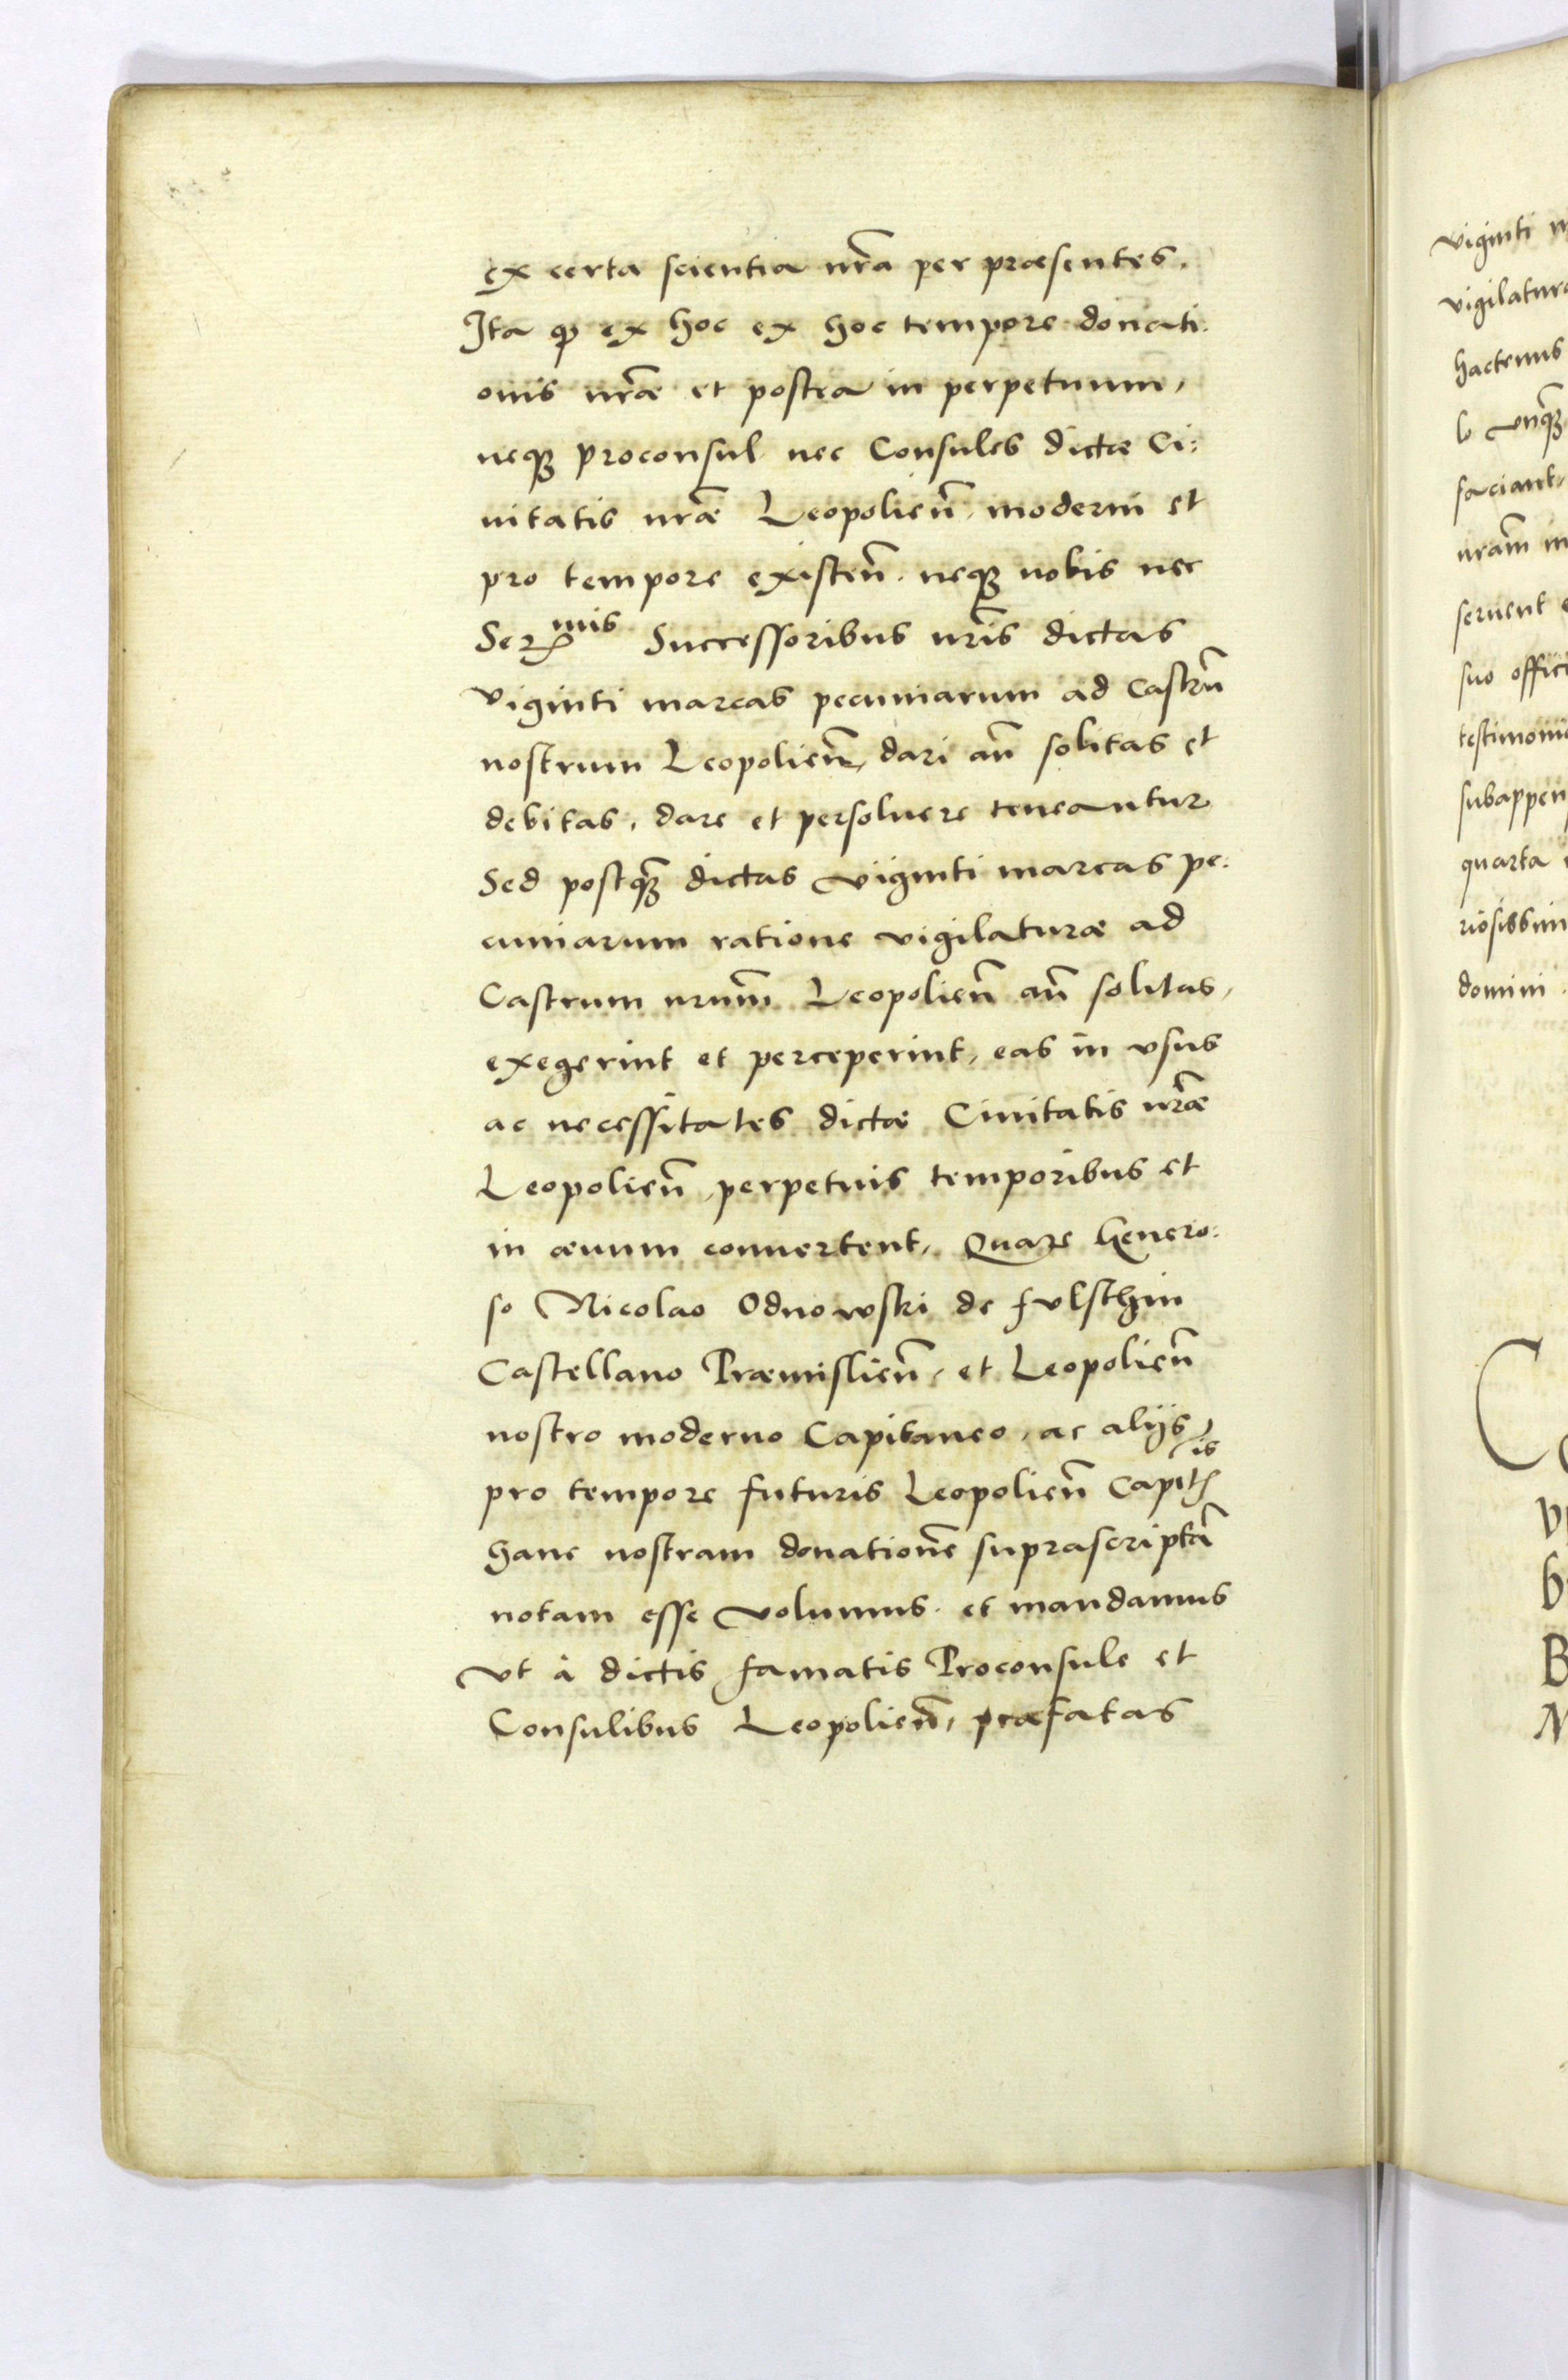 ex certa scientia nr̃a per præsentes.
Ita ꝙ ex hoc ex hoc tempore donati:
onis nr̃æ et postea in perpetuum,
neqꝫ proconsul nec Consules dictæ Ci:
uitatis nr̃æ Leopolien̄. moderni et
pro tempore existen̄. neqꝫ nobis nec
Ser^mis Successoribus nr̃is dictas
viginti marcas pecuniarum ad Castrū
nostrum Leopolien̄, dari an̄ solitas et
debitas, dare et persoluere teneantur
Sed postqꝫ̄ dictas viginti marcas pe:
cuniarum ratione vigilaturæ ad
Castrum nrūm Leopolien̄ an̄ solitas,
exegerint et perceperint, eas in vsus
ac necessitates dictæ Ciuitatis nr̃æ
Leopolien̄, perpetuis temporibus et
in æuum conuertent, Quare Genero:
so Nicolao Odnowski de fvlsthin
Castellano Præmislien̄, et Leopolien̄
nostro moderno Capitaneo, ac alijs
pro tempore futuris Leopolien̄ Capit^is
hanc nostram donationē suprascriptā
notam esse volumus. et mandamus
vt à dictis famatis Proconsule et
Consulibus Leopolien̄, præfatas
viginti
vigilatura
hactenus
vnqꝫ̄
faciant,
nrām in
seruent
suo offici
testimoni
subappen
quarta
riosissim
domini